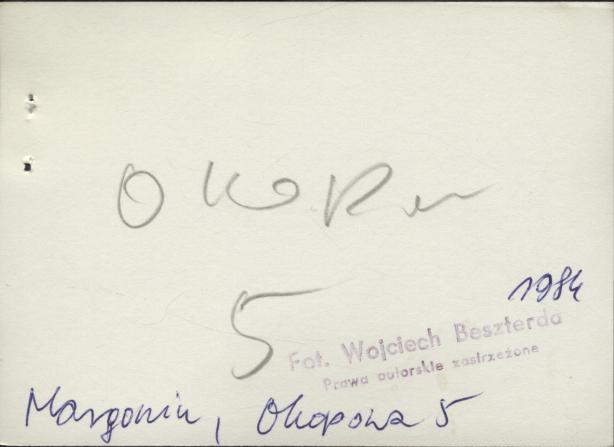 Okop
5
1984
Fot. Wojciech Beszterda
Prawa autorskie zastrzeżone
Margonin, Okopowa 5